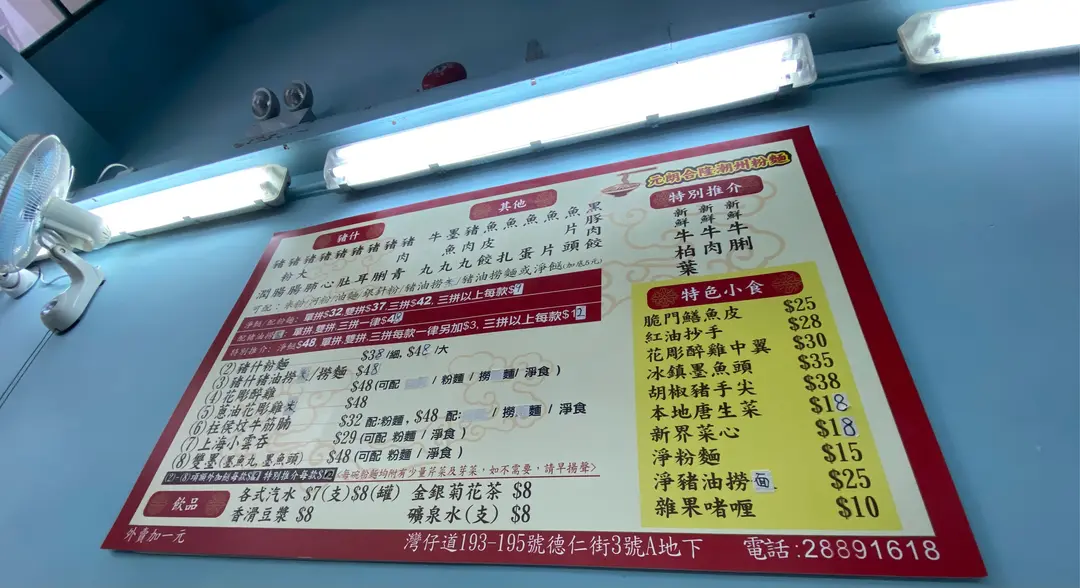 元朗合隆潮州粉麵
豬什
豬粉 豬大 豬 豬 豬 豬 豬肉 豬 豬
潤 腸 腸 肺 心 肚 耳 脷 青
其他
牛 墨魚 豬肉 魚皮 魚 魚 魚 魚片 黑豚肉
丸 丸 丸 餃 扎 蛋 片 頭 餃
特別推介
新鮮牛柏葉 新鮮牛肉 新鮮牛脷
可配：米粉/河粉/油麵/銀針粉/豬油撈/豬油撈麵或淨餸(加底5元)
淨餸/配粉麵：單拼$32 雙拼$37 三拼$42, 三拼以上每款$
單拼,雙拼,三拼一律$4
特別推介：淨餸$48, 單拼,雙拼,三拼每款一律另加$3, 三拼以上每款$12
(2)豬什粉麵 $38/細, $48/大
(3)豬什豬油撈 /撈麵 $48
(4)花彫醉雞 $48(可配 / 粉麵 / 撈 麵/ 淨食 )
(5)蔥油花彫雞 $48
(6)柱侯炆牛筋腩 $32 配:粉麵, $48 配: / 撈 麵 / 淨食
(7)上海小雲吞 $29(可配 粉麵 / 淨食 )
(8)雙墨(墨魚丸 墨魚頭) $48(可配 粉麵 / 淨食 )
特別推介每款$12
<每碗粉麵均附有少量芹菜及芽菜，如不需要，請早揚聲>
飲品
各式汽水 $7(支)$8(罐) 金銀菊花茶 $8
香滑豆漿 $8 礦泉水(支) $8
特色小食
脆鬥鱔魚皮 $25
紅油抄手 $28
花彫醉雞中翼 $30
冰鎮墨魚頭 $35
胡椒豬手尖 $38
本地唐生菜 $18
新界菜心 $18
淨粉麵 $15
淨豬油撈麵 $25
雜果啫喱 $10
外賣加一元
灣仔道193-195號德仁街3號A地下
電話:28891618